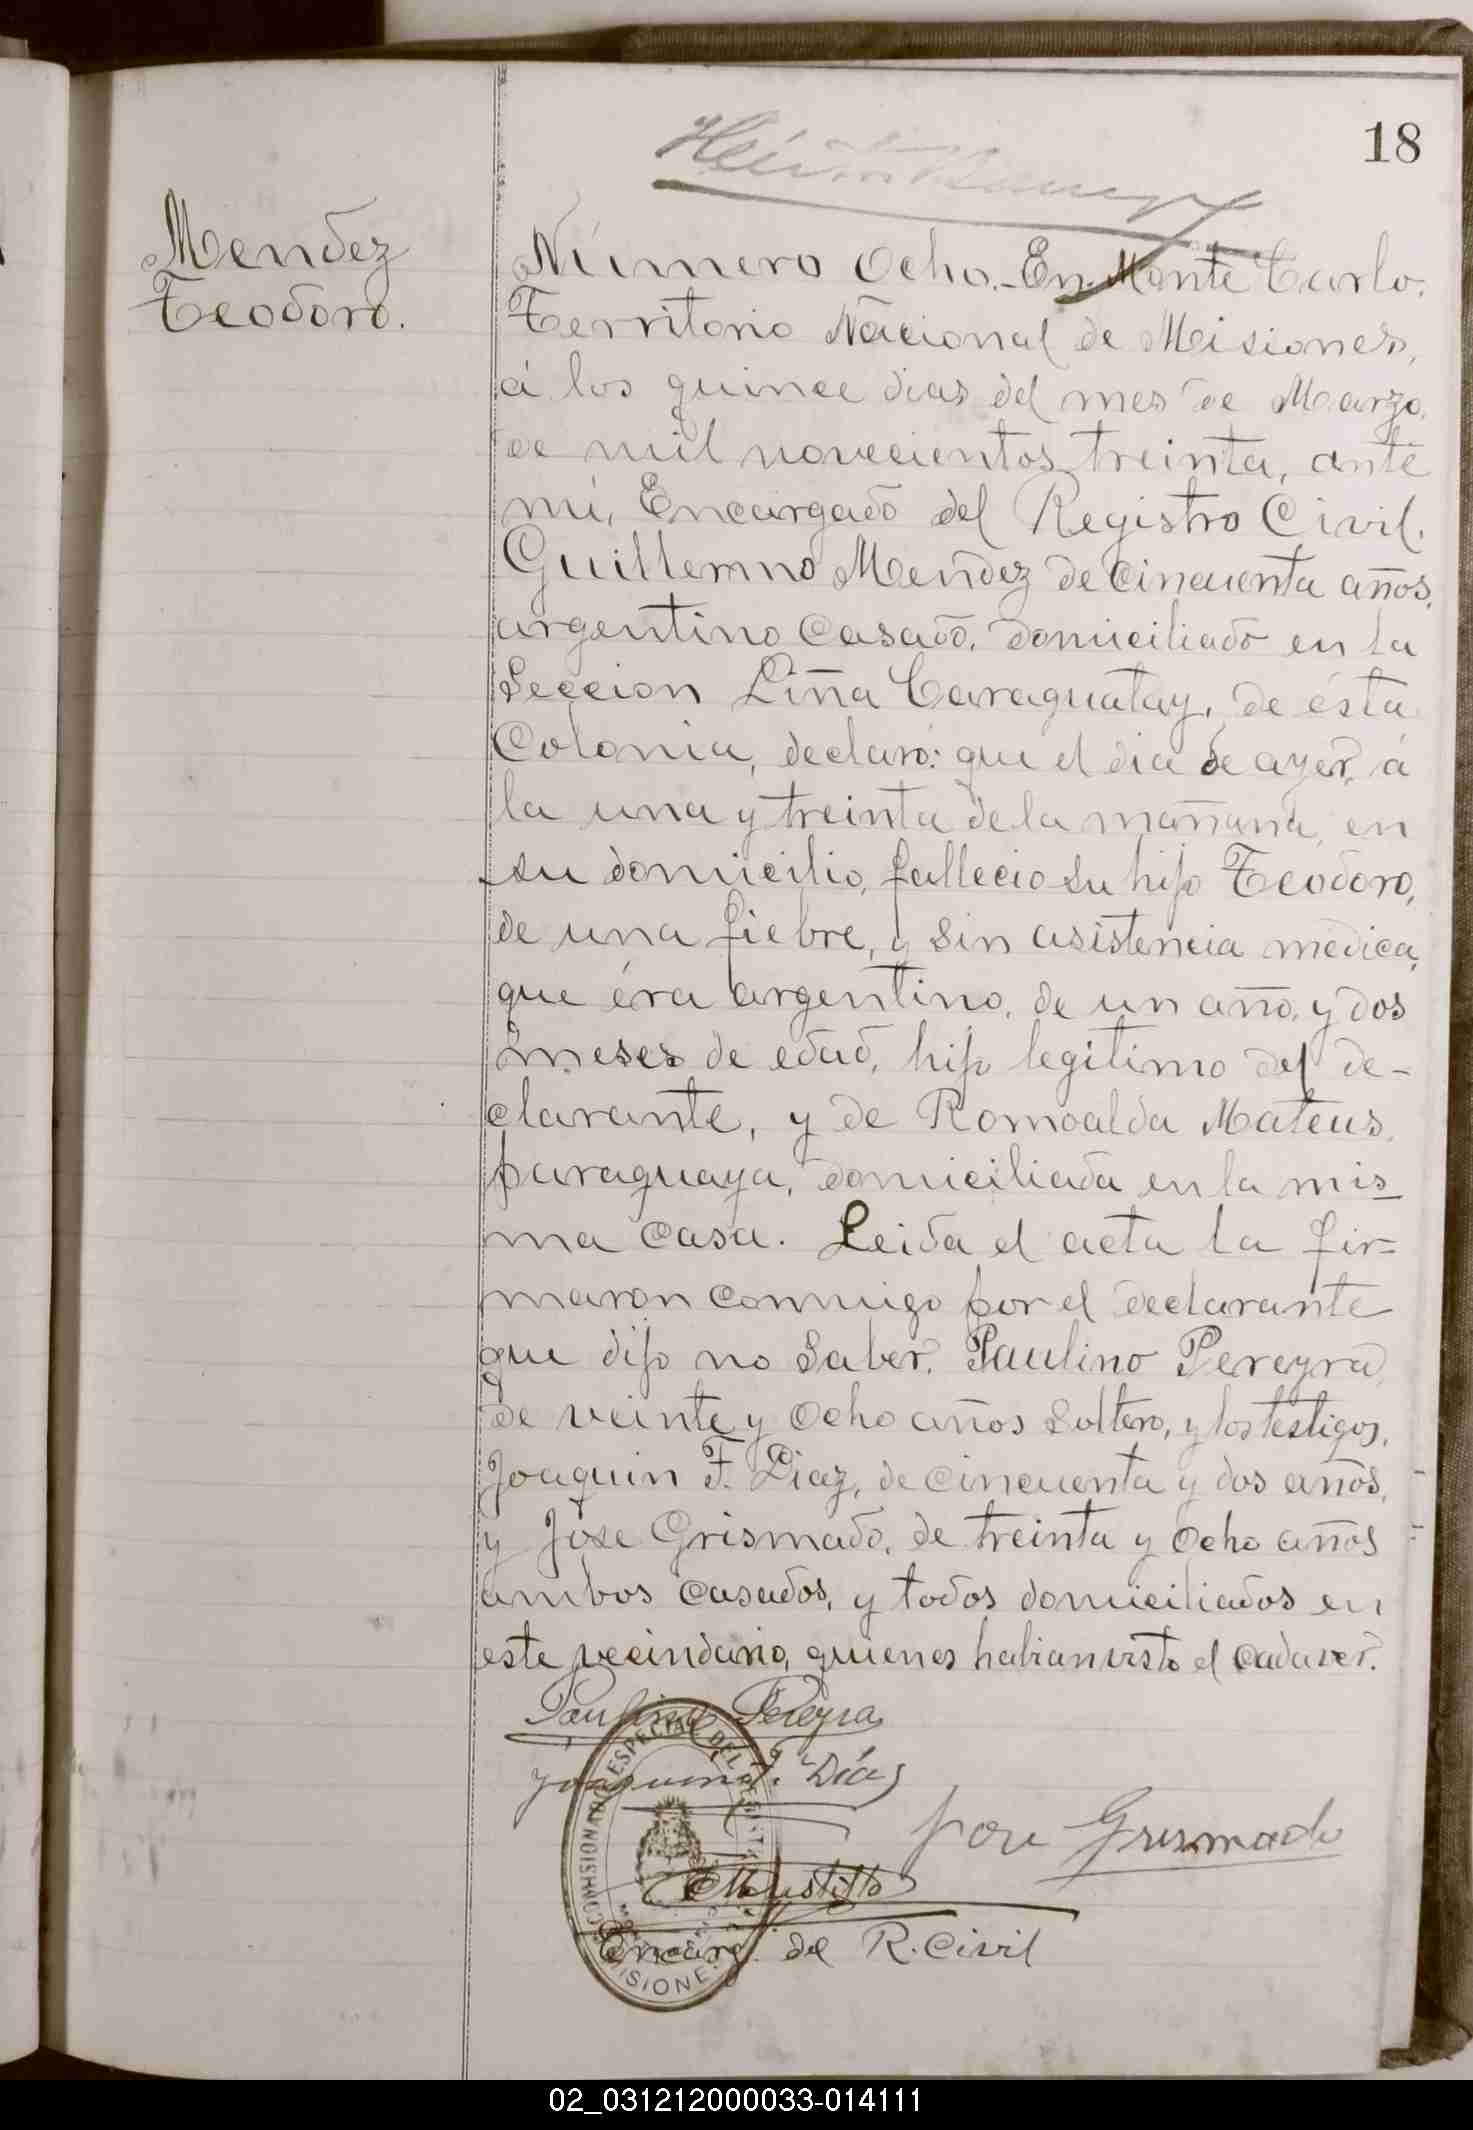 18
Mendez
Teodoro.
Número Ocho.- En Monte Carlo,
Territorio Nacional de Misiones,
á los quince dias del mes de Marzo,
de mil novecientos treinta, ante
mi, Encargado del Registro Civil.
Guillermo Mendez de cincuenta años,
argentino casado, domiciliado en la
Seccion Liña Caraguatay, de ésta
Colonia, declaró: que el dia de ayer, á
la una y treinta de la mañana, en
su domicilio, fallecio su hijo Teodoro,
de una fiebre, y sin asistencia medica,
que éra argentino, de un año, y dos
meses de edad, hijo legitimo del de-
clarante, y de Romoalda Mateus,
paraguaya, domiciliada en la mis-
ma casa. Leida el acta la fir-
maron conmigo por el declarante
que dijo no saber. Paulino Pereyra,
de veinte y ocho años soltero, y los testigos,
Joaquin F. Diaz, de cincuenta y dos años,
y José Grismado, de treinta y ocho años
ambos casados, y todos domiciliados en
este vecindario, quienes habian visto el cadaver.
Paulino Pereyra
Joaquin F. Díaz
José Grismado
Encarg. del R. Civil
ESPECIAL DEL
MISIONES
02_031212000033-014111